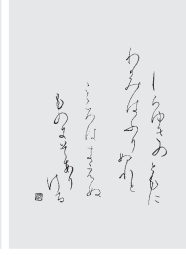 しらゆきのともに
わかみはふりぬれと
こゝろはきえぬ
ものにそあり
ける